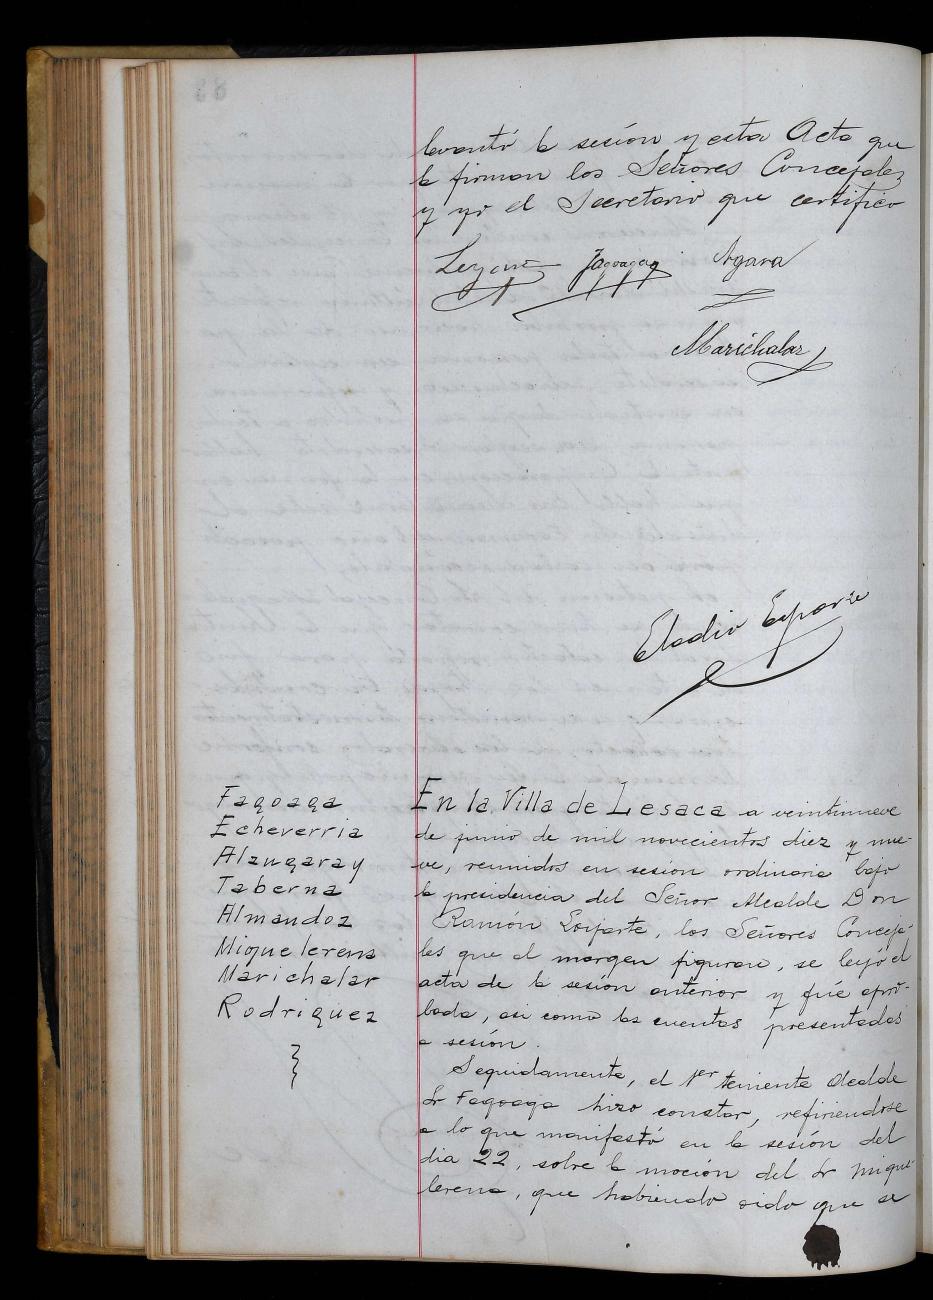 levantó la sesión y esta Acta que
la firman los Señores Concejales
y yo el Secretario que certifico
Fagoaga Agara
Marichalar
Eladio Esparza
Fagoaga
Echeverria
Alzugaray
Taberna
Almandoz
Miquelerena
Marichalar
Rodriguez
En la Villa de Lesaca a veintinueve
de junio de mil novecientos diez y nue-
ve, reunidos en sesión ordinaria bajo
la presidencia del Señor Alcalde Don
Ramón, los Señores Conceja-
les que al margen figuran, se leyó el
acta de la sesion anterior y fué apro-
bada, asi como las cuentas presentadas
a sesión.
Seguidamente, el 1er teniente Alcalde
Sr Fagoaga hizo constar, refiriendose
a lo que manifestó en la sesión del
dia 22, sobre la moción del Sr Mique-
lerena, que habiendo sido que se